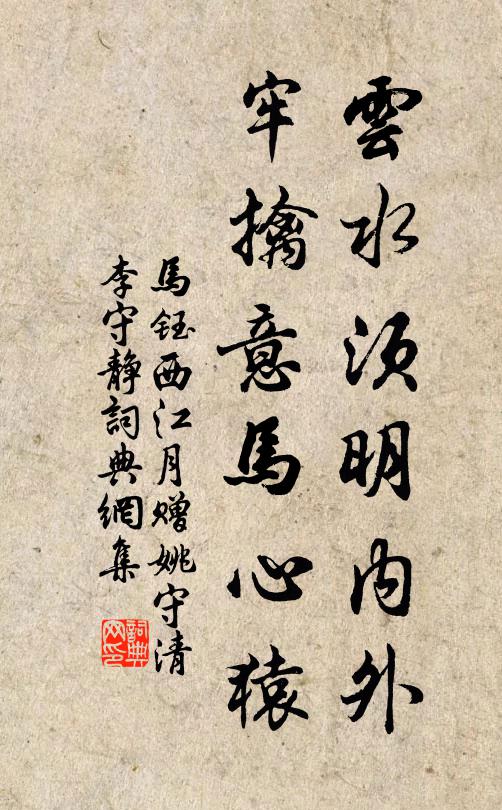 雲水須明內外
牢擒意馬心猿
馬鈺西江月贈姚守清
李守靜詞典網集
詞典
网印